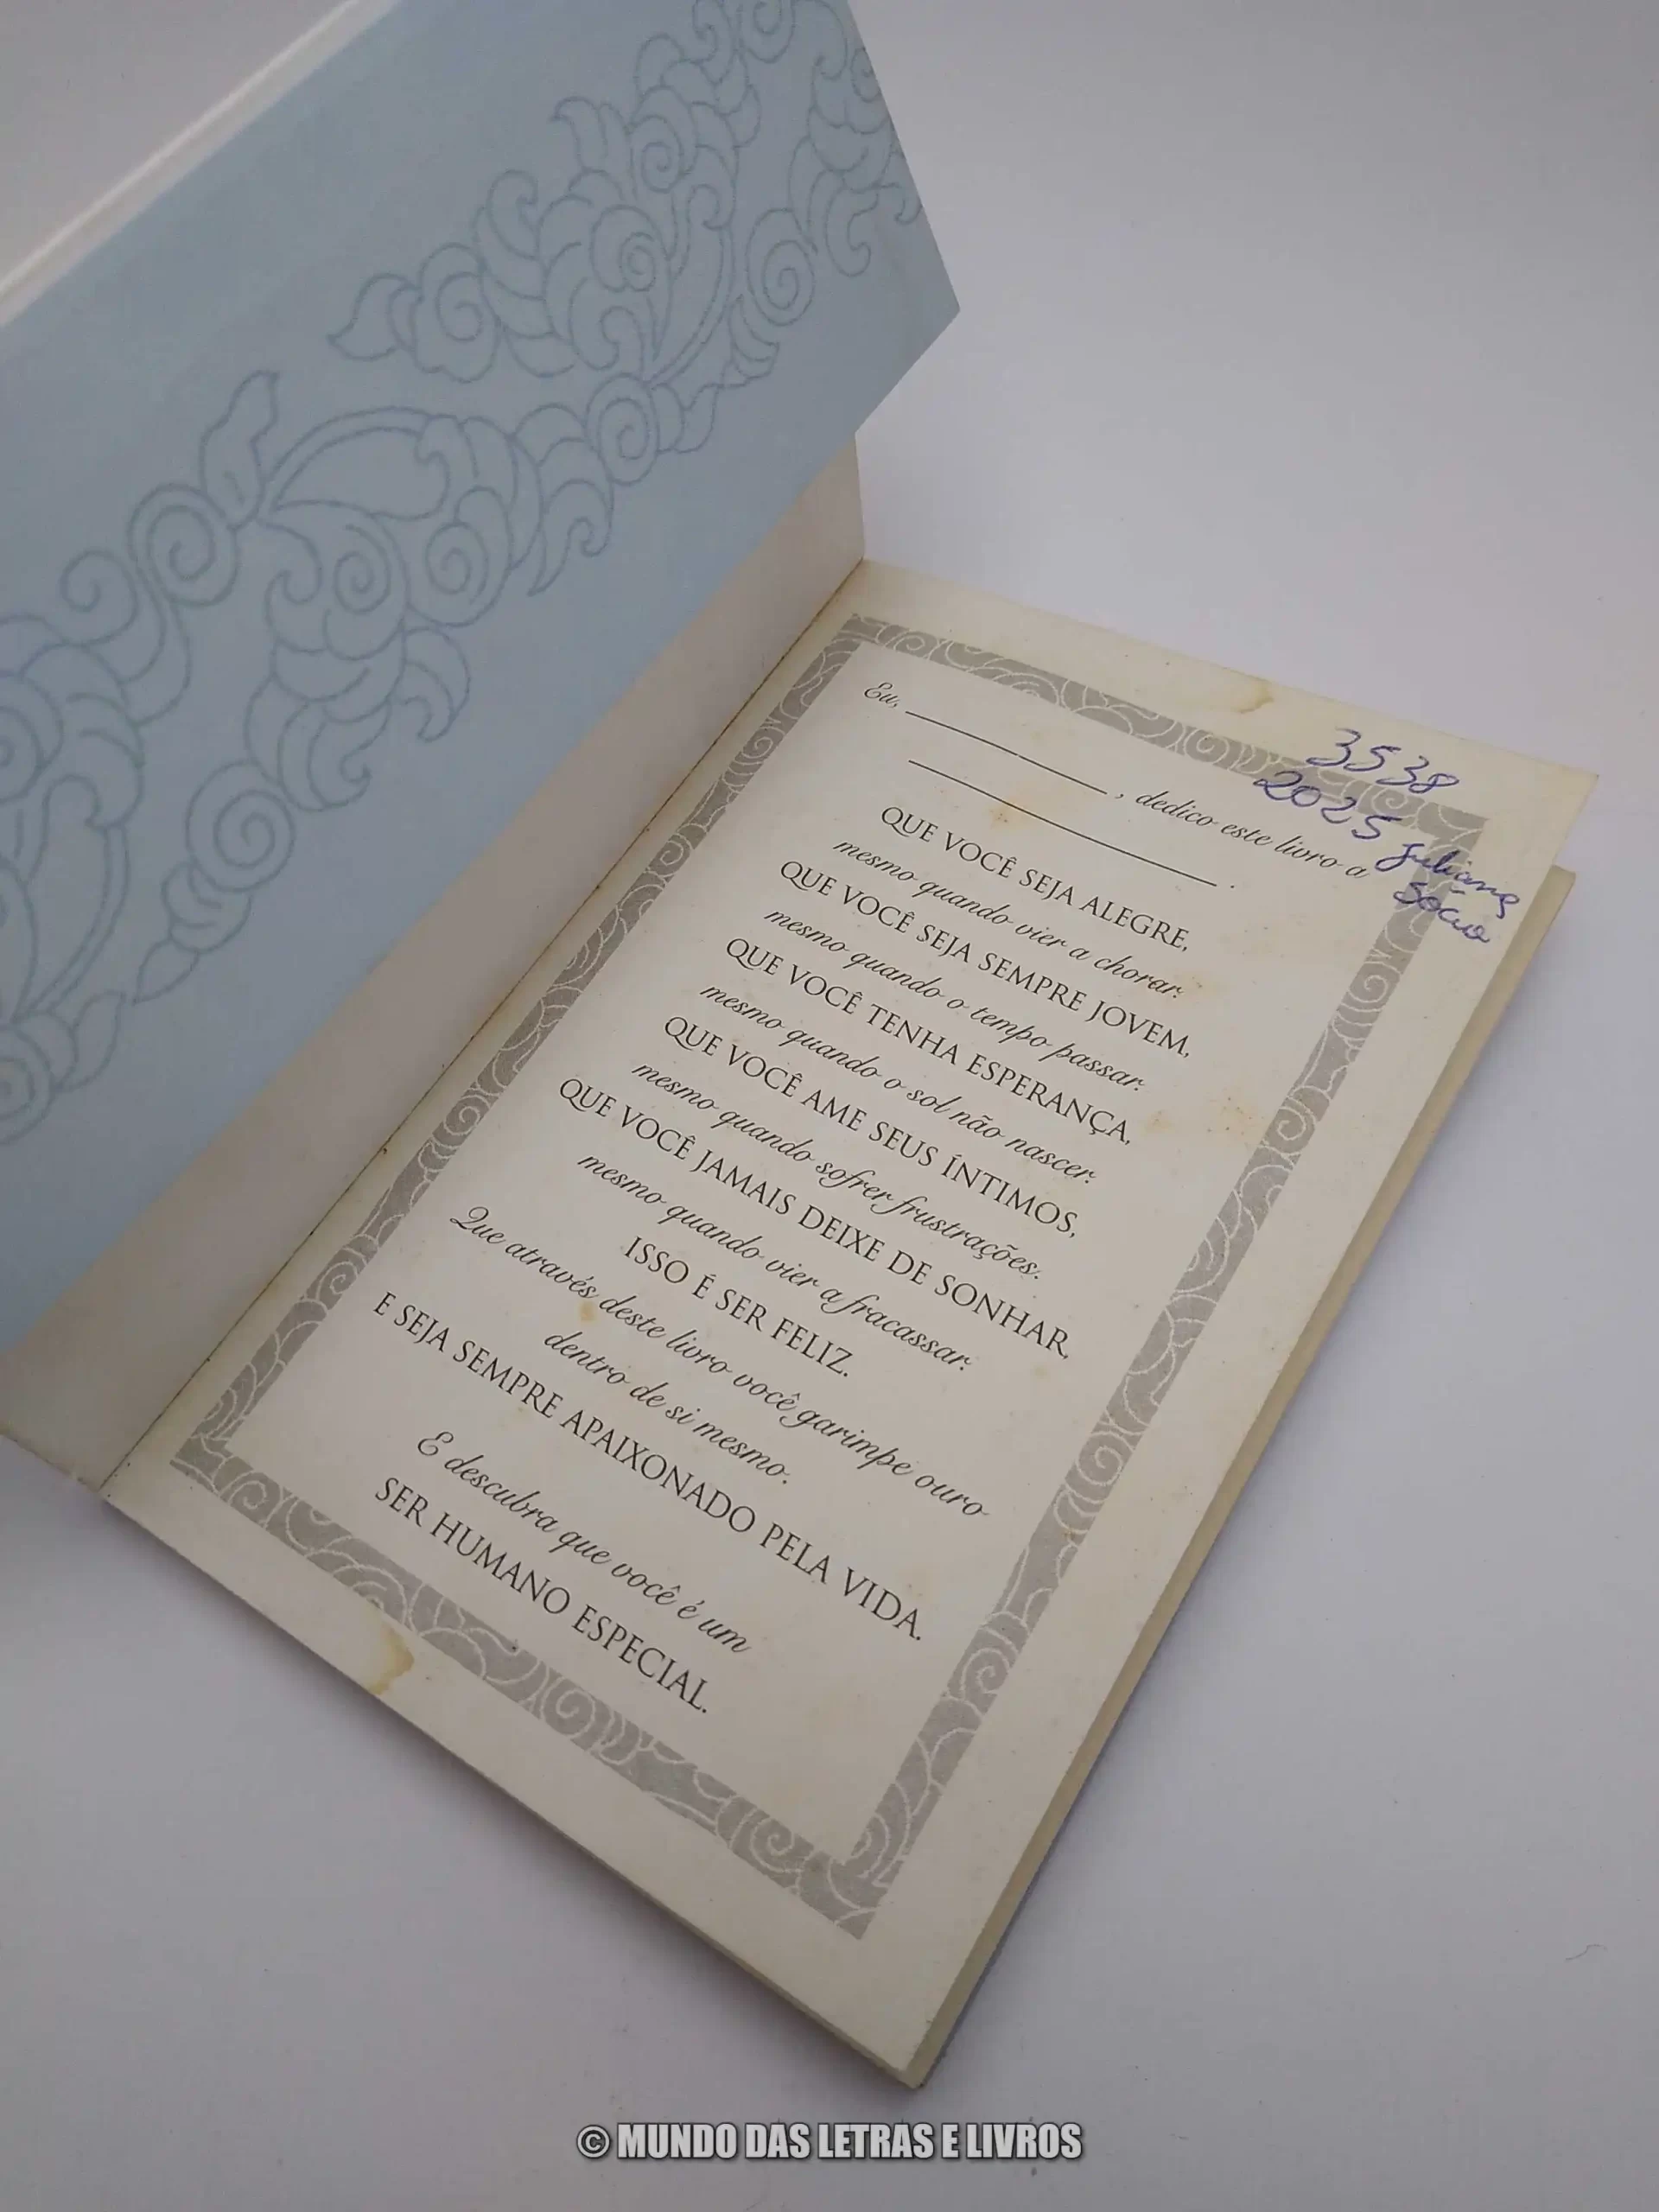 3538
2025
Juliana
Sócio
Eu, ____________ , dedico este livro a
____________ .
QUE VOCÊ SEJA ALEGRE,
mesmo quando vier a chorar.
QUE VOCÊ SEJA SEMPRE JOVEM,
mesmo quando o tempo passar.
QUE VOCÊ TENHA ESPERANÇA,
mesmo quando o sol não nascer.
QUE VOCÊ AME SEUS ÍNTIMOS,
mesmo quando sofrer frustrações.
QUE VOCÊ JAMAIS DEIXE DE SONHAR,
mesmo quando vier a fracassar.
ISSO É SER FELIZ.
Que através deste livro você garimpe ouro
dentro de si mesmo.
E SEJA SEMPRE APAIXONADO PELA VIDA.
E descubra que você é um
SER HUMANO ESPECIAL.
© MUNDO DAS LETRAS E LIVROS